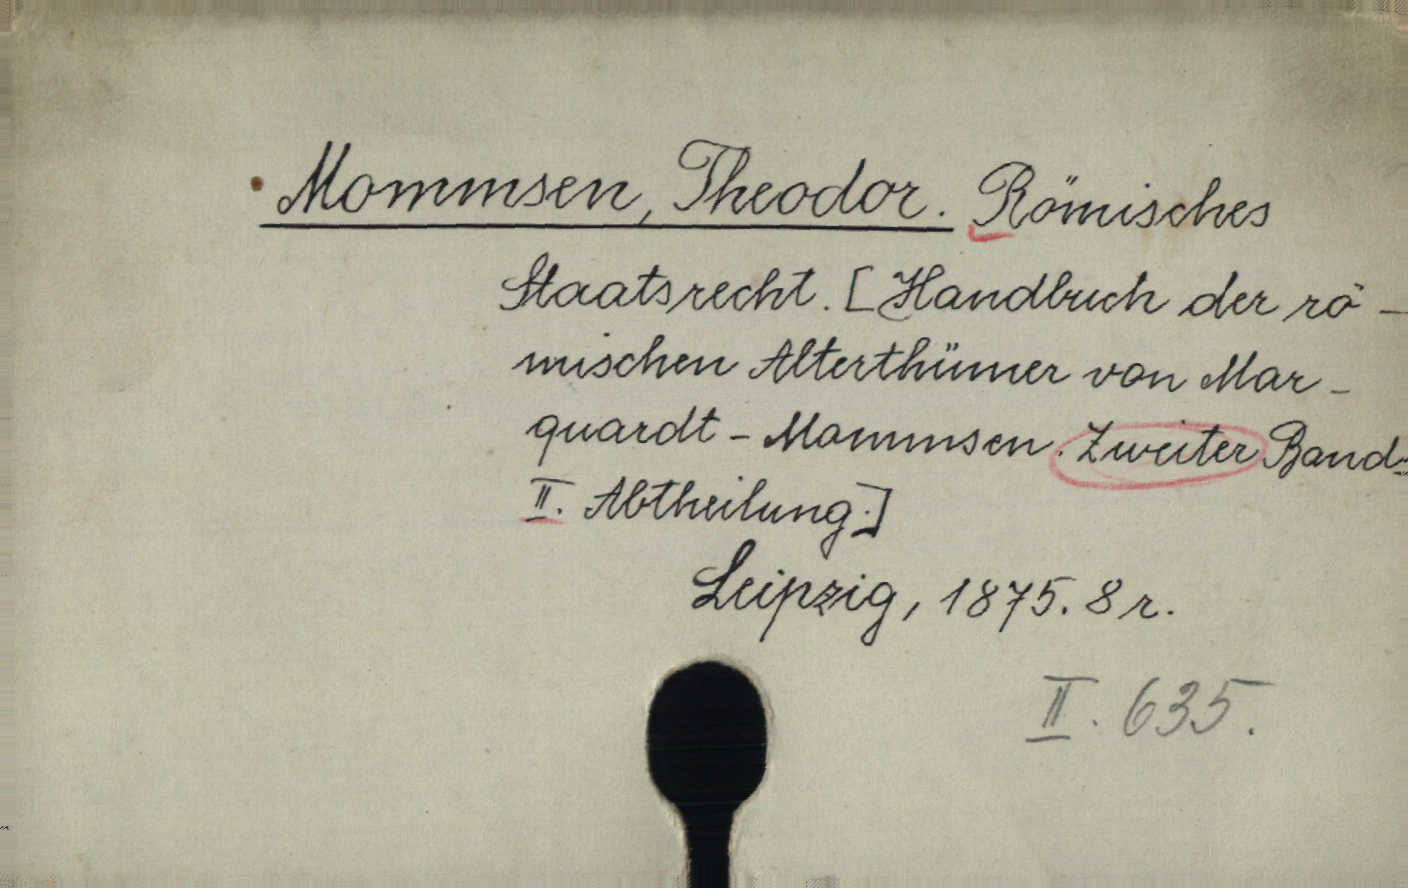 Mommsen, Theodor. Römisches
Staatsrecht. [Handbuch der rö-
mischen Alterthümer von Mar-
quardt - Mommsen. Zweiter Band.
II. Abtheilung.]
Leipzig, 1875. 8 r.
II. 635.